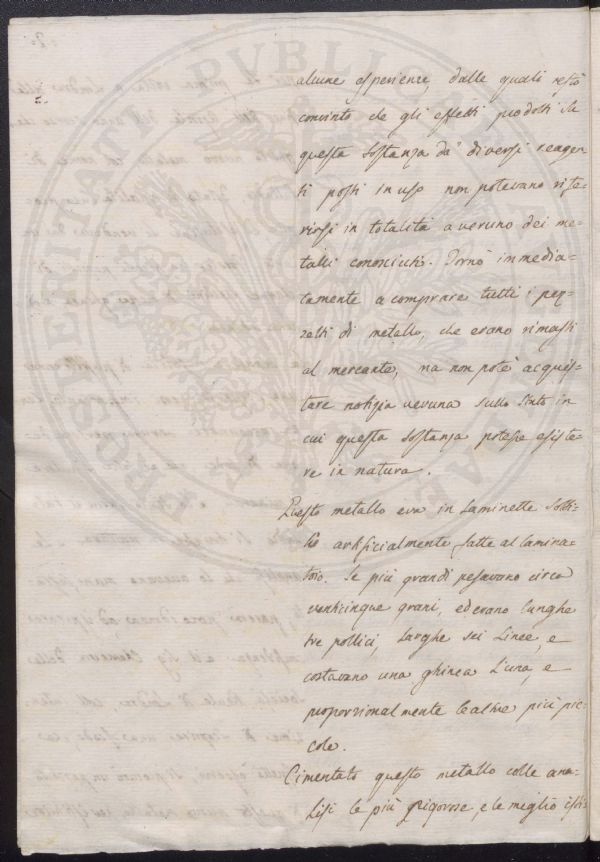 alcune esperienze, dalle quali restò
convinto che gli effetti prodotti su
questa sostanza da' diversi reagen-
ti posti in uso non potevano rife-
rirsi in totalità a veruno dei me-
talli conosciuti. Tornò immedia-
tamente a comprare tutti i pez-
zetti di metallo, che erano rimasti
al mercante, ma non potè acquis-
tare notizia veruna sullo stato in
cui questa sostanza potesse esiste-
re in natura.
Questo metallo era in Laminette sotti-
li artificialmente fatte al lamina-
toio. Le più grandi pesavano circa
venticinque grani, ed erano lunghe
tre pollici, larghe sei Linee, e
costavano una ghinea l'una, e
proporzionalmente le altre più pic-
cole.
Cimentato questo metallo colle ana-
lisi le più rigorose, e le meglio isti-
PROSPERITATI PUBLICAE